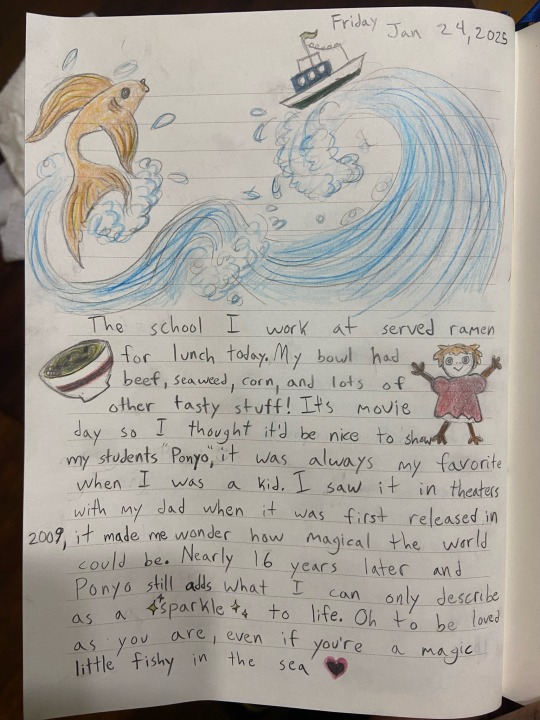 Friday Jan 24, 2025
The school I work at served ramen
for lunch today. My bowl had
beef, seaweed, corn, and lots of
other tasty stuff! It's movie
day so I thought it'd be nice to show
my students "Ponyo", it was always my favorite
when I was a kid. I saw it in theaters
with my dad when it was first released in
2009, it made me wonder how magical the world
could be. Nearly 16 years later and
Ponyo still adds what I can only describe
as a sparkle to life. Oh to be loved
as you are, even if you're a magic
little fishy in the sea